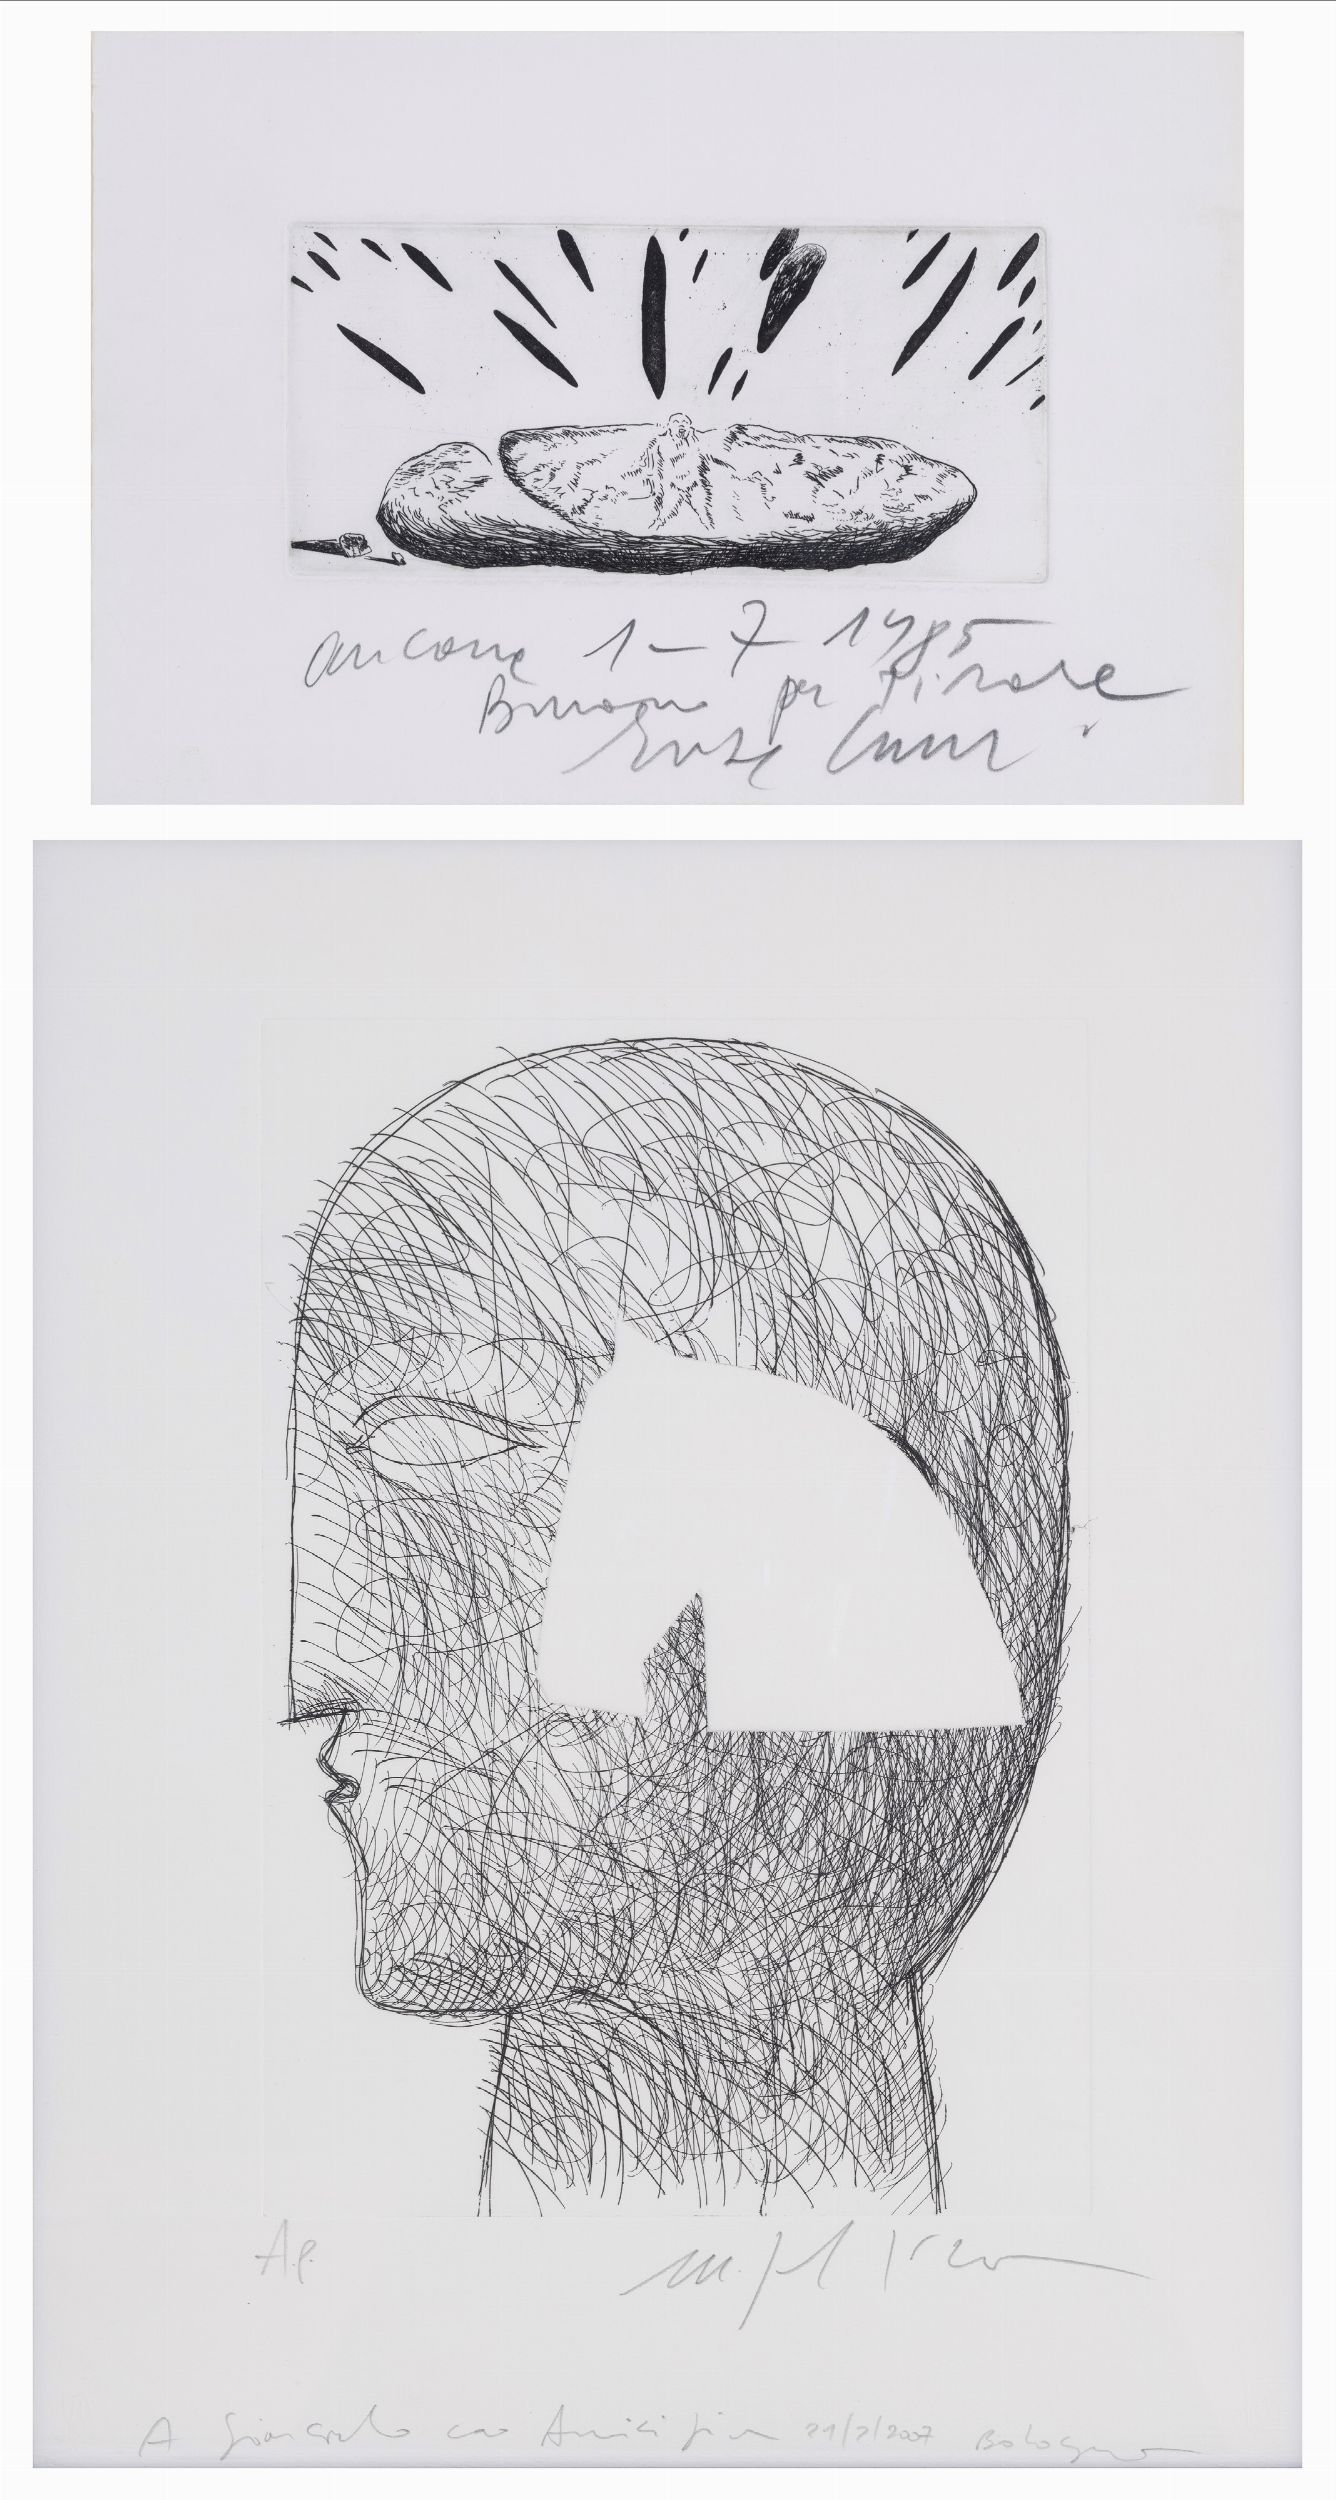 ancona 1-7 1985
Buono per Tirare
Enzo Cucchi
A.P.
A Giancarlo con Amicizia 21/2/2007 Bologna